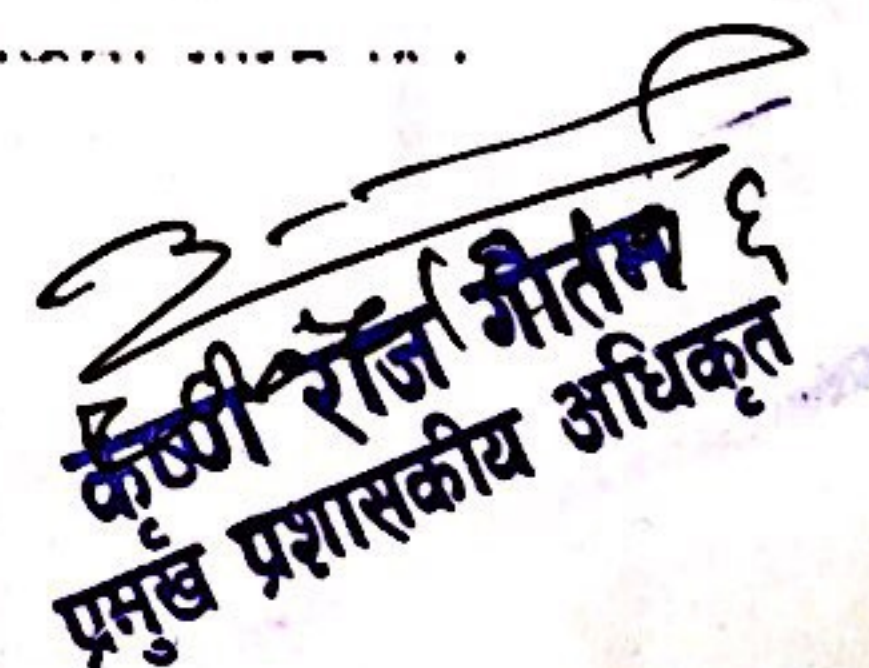 कृष्ण राज गौतम
प्रमुख प्रशासकीय अधिकृत